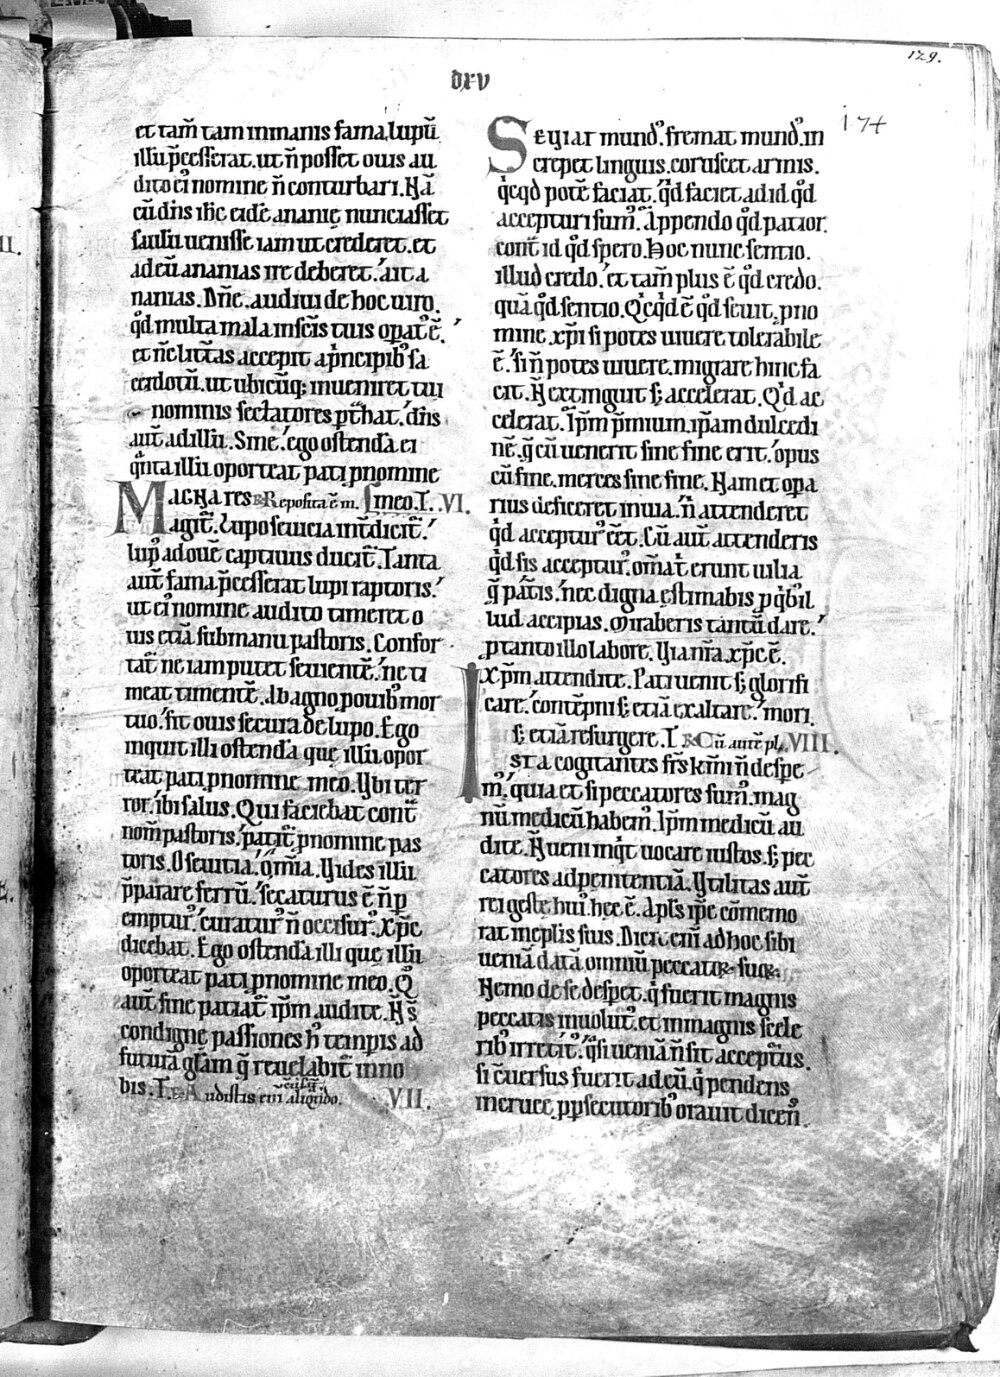 129.
dxv
174
et tam̃ tam immanis fama. lupũ
illũ p̃cesserat. ut ñ posset ouis au
dito ei' nomine ñ conturbari. Nã
cũ dñs ihc eidẽ ananię nunciasset
saulũ uenisse iam ut crederet. et
ad eũ ananias ire deberet. ait a
nanias. Dñe. audiui de hoc uiro.
qd̃ multa mala in sc̃is tuis opat' ẽ.
et ñc litt̃as accepit a p̃ncipib' sa
cerdotũ. ut ubicũq; inueniret tui
nominis sectatores pt̃hat. dñs
aut̃ ad illũ. Sine. ego ostendã ei
q̃nta illũ oporteat pati p nomine
meo. T. VI.
MAGNA RES R Reposita ẽ m.
agit̃. Lupo seuicia int̃dicit̃.
lup' ad ouẽ captiuus ducit̃. Tanta
aut̃ fama p̃cesserat lupi raptoris.
ut ei' nomine audito timeret o
uis etiã sub manu pastoris. Confor
tat̃ ne iam putet seuientẽ. ne ti
meat timentẽ. Ab agno p ouib' mor
tuo. fit ouis secura de lupo. Ego
inquit illi ostendã que illũ opor
teat pati p nomine meo. Vbi ter
ror. ibi salus. Qui faciebat cont̃
nom̃ pastoris. patit̃ p nomine pas
toris. O seuitiã. q̃ m̃ia. Vides illũ
p̃parare ferrũ. secaturus ẽ ñ p
empturʼ. curaturʼ ñ occisurʼ. Xp̃c
dicebat. Ego ostendã illi que illũ
oporteat pati p nomine meo. Q̊
aut̃ fine patiat̃ ip̃m audite. Ñ s̃
condignę passiones h' tẽnpis ad
futurã gl̃am q̃ reuelabit̃ in no
bis. T. R Audistis eni aliquido. VII.
SEVIAT mund'. fremat mund'. in
crepet linguis. coruscet armis.
q̊cqd̊ potẽ faciat. qd̊ faciet ad id qd̊
accepturi sum'. Appendo qd̊ patior.
cont̃ id qd̊ spero. Hoc nunc sentio.
illud credo. et tam̃ plus ẽ qd̊ credo.
quã qd̊ sentio. Q̊cqd̊ ẽ qd̊ seuit. p no
mine xp̃i si potes uiuere tolerabile
ẽ. si ñ potes uiuere. migrare hinc fa
cit. Ñ extinguit s; accelerat. Q̊d ac
celerat. Ip̃m p̃mium. ip̃am dulcedi
nẽ. q̃ cũ uenerit sine fine erit. opus
cũ fine. merces sine fine. Nam et opa
rius deficeret in uia. ñ attenderet
qd̊ accepturʼ eẽt. Cũ aut̃ attenderis
qd̊ sis accepturʼ. om̃a t̊ erunt uilia
q̃ pat̃is. nec digna estimabis p q̊b' il
lud accipias. Miraberis tantũ dare.
p tanto illo labore. Via nr̃a. xp̃c ẽ.
xp̃m attendite. Pati uenit s; glorifi
cari. contẽpni s; etiã exaltare. mori.
s; etiã resurgere. T. R Cũ autẽ pl. VIII.
ISTA cogitantes fr̃s km̃i ñ despe
m'. quia et si peccatores sum'. mag
nũ medicũ habem'. Ip̃m medicũ au
dite. Ñ ueni inqt̊ uocare iustos. s; pec
catores ad penitentiã. Vtilitas aut̃
rei gestę hui' hęc ẽ. Ap̃ls ip̃e cõmemo
rat in ep̃lis suis. Dicit eni ad hoc sibi
ueniã datã omniũ peccatoꝝ suoꝝ.
Nemo de se despet. q̊ fuerit magnis
peccatis inuolut'. et in magnis scele
rib' irretit'. q̊si ueniã ñ sit accepturus.
si c̃uersus fuerit ad eũ. q̊ pendens
in cruce. p psecutorib' orauit dicen'